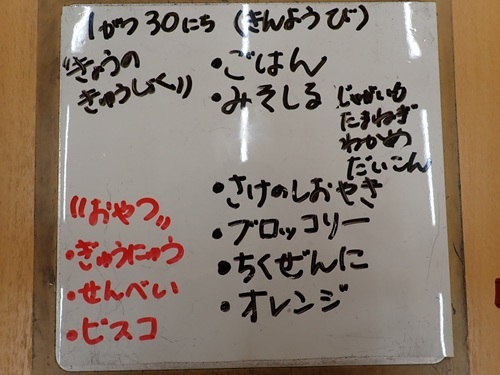 1がつ30にち（きんようび）
"きょうの
きゅうしょく"
・ごはん
・みそしる
じゃがいも
たまねぎ
わかめ
だいこん
・さけのしおやき
・ブロッコリー
・ちくぜんに
・オレンジ
"おやつ"
・ぎゅうにゅう
・せんべい
・ビスコ